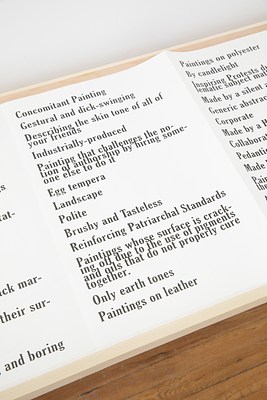 Concomitant Painting
Gestural and dick-swinging
Describing the skin tone of all of
your friends
Industrially-produced
Painting that challenges the no-
tion of authorship by hiring some-
one else to do it
Egg tempera
Landscape
Polite
Brushy and Tasteless
Reinforcing Patriarchal Standards
Paintings whose surface is crack-
ing off due to the use of pigments
and oils that do not properly cure
together.
Only earth tones
Paintings on leather
ck mar-
their sur-
and boring
Paintings on polyester
By candlelight
Inspiring Protests
Made by a silent
Generic abstract
Corporate
Made by a
Collabora
Pedanti
Made
Pain